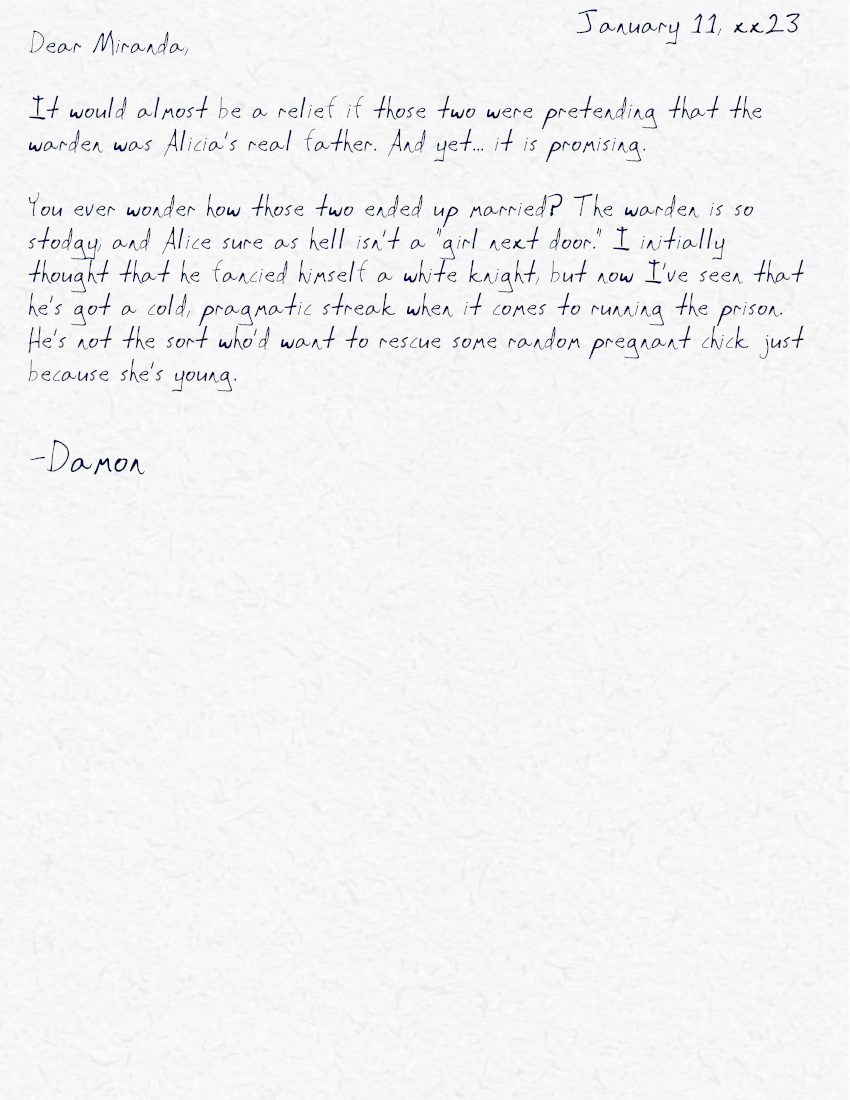 January 11, xx23
Dear Miranda,
It would almost be a relief if those two were pretending that the
warden was Alicia's real father. And yet... it is promising.
You ever wonder how those two ended up married? The warden is so
stodgy, and Alice sure as hell isn't a "girl next door." I initially
thought that he fancied himself a white knight, but now I've seen that
he's got a cold, pragmatic streak when it comes to running the prison.
He's not the sort who'd want to rescue some random pregnant chick just
because she's young.
-Damon